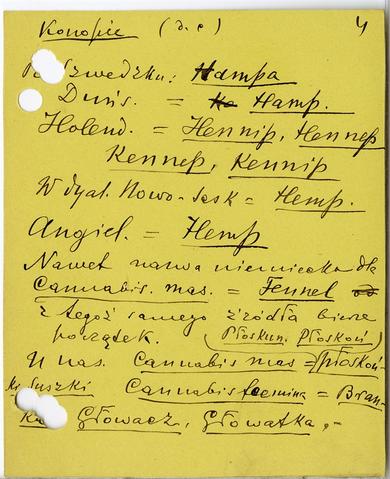 Konopie (d. c) 4
Po Szwedzku: Hampa
Duńs. = Hamp.
Holend. = Hennip, Hennep
Kennep, Kennip
W dyal. Nowo-sask = Hemp.
Angiel. = Hemp
Nawet nazwa niemiecka dla
Cannabis. mas. = Fennel
z tegoż samego źródła bierze
początek. (Płoskun. Płoskoń)
U nas. Cannabis mas = płoskoń-
ki, Cannabis foemina = Bran-
ka Głowacz, Głowatka,-